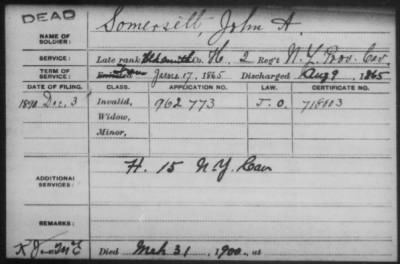 DEAD
NAME OF SOLDIER: Somersell, John A.
SERVICE: Late rank Blksmith Co. H. 2 Reg't N.Y. Prov. Cav.
TERM OF SERVICE: Enlisted From June 17, 1865 Discharged Aug 9 1865
DATE OF FILING. CLASS. APPLICATION NO. LAW. CERTIFICATE NO.
1890 Dec. 3 Invalid, 962 773 J. O. 718003
Widow,
Minor,
ADDITIONAL SERVICES: H. 15 N.Y. Cav
REMARKS:
Died Mch 31, 1900, at